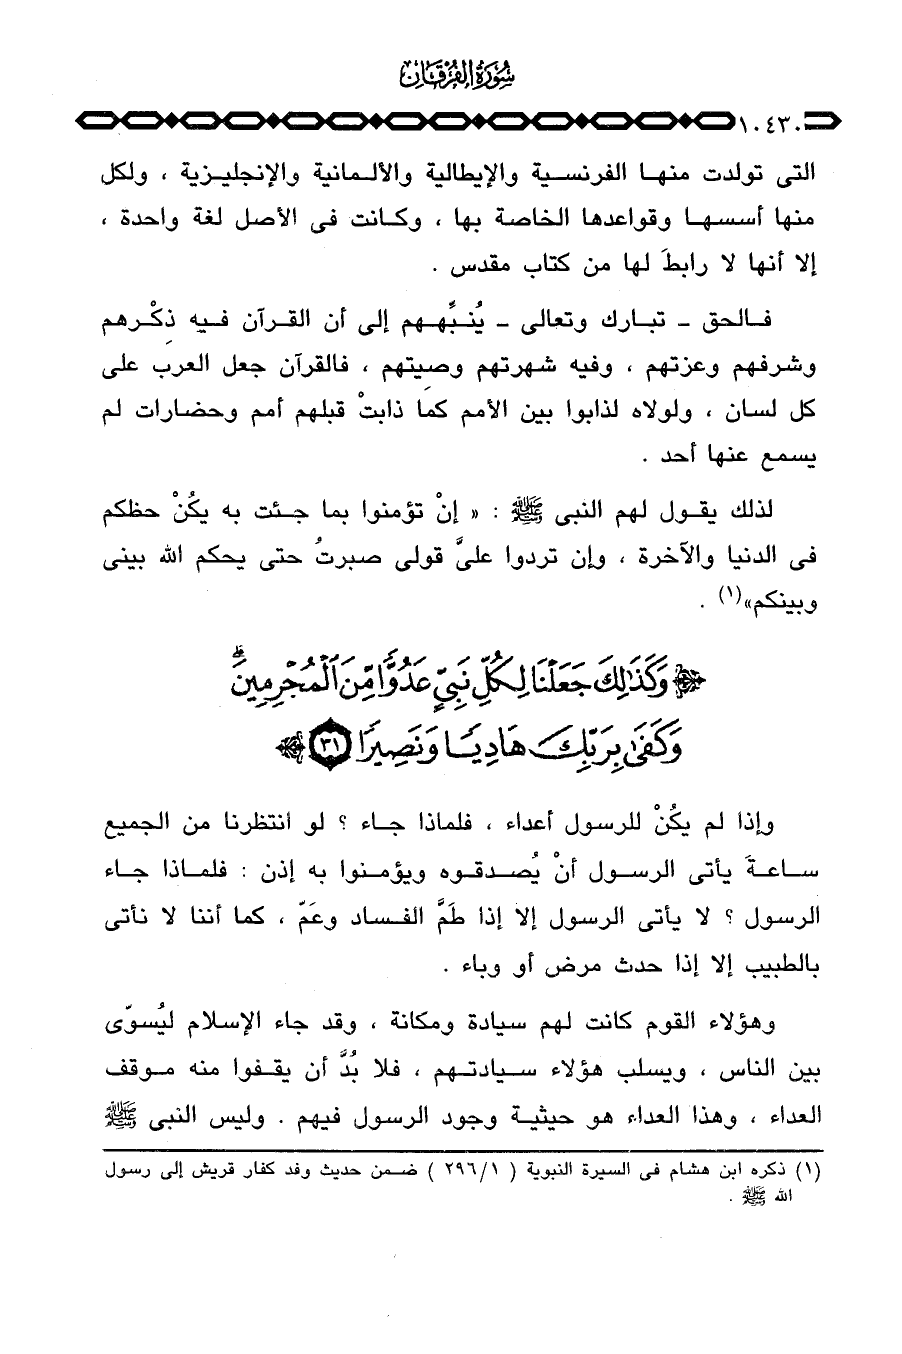 سُورَةُ الفُرْقَانِ
١٠٤٣٠
التى تولدت منها الفرنسية والإيطالية والألمانية والإنجليزية ، ولكل
منها أسسها وقواعدها الخاصة بها ، وكانت فى الأصل لغة واحدة ،
إلا أنها لا رابطَ لها من كتاب مقدس .
فالحق - تبارك وتعالى - يُنبِّههم إلى أن القرآن فيه ذكْرهم
وشرفهم وعزتهم ، وفيه شهرتهم وصِيتهم ، فالقرآن جعل العرب على
كل لسان ، ولولاه لذابوا بين الأمم كما ذابتْ قبلهم أمم وحضارات لم
يسمع عنها أحد .
لذلك يقول لهم النبى ﷺ : « إنْ تؤمنوا بما جئت به يكُنْ حظكم
فى الدنيا والآخرة ، وإن تردوا علىَّ قولى صبرتُ حتى يحكم الله بينى
وبينكم»(١) .
﴿ وَكَذَٰلِكَ جَعَلْنَا لِكُلِّ نَبِيٍّ عَدُوًّا مِّنَ ٱلْمُجْرِمِينَۗ
وَكَفَىٰ بِرَبِّكَ هَادِيًا وَنَصِيرًا ٣١ ﴾
وإذا لم يكُنْ للرسول أعداء ، فلماذا جاء ؟ لو انتظرنا من الجميع
ساعةَ يأتى الرسول أنْ يُصدقوه ويؤمنوا به إذن : فلماذا جاء
الرسول ؟ لا يأتى الرسول إلا إذا طَمَّ الفساد وعَمّ ، كما أننا لا نأتى
بالطبيب إلا إذا حدث مرض أو وباء .
وهؤلاء القوم كانت لهم سيادة ومكانة ، وقد جاء الإسلام ليُسوّى
بين الناس ، ويسلب هؤلاء سيادتهم ، فلا بُدَّ أن يقفوا منه موقف
العداء ، وهذا العداء هو حيثية وجود الرسول فيهم . وليس النبى ﷺ
(١) ذكره ابن هشام فى السيرة النبوية ( ٢٩٦/١ ) ضمن حديث وفد كفار قريش إلى رسول
الله ﷺ .